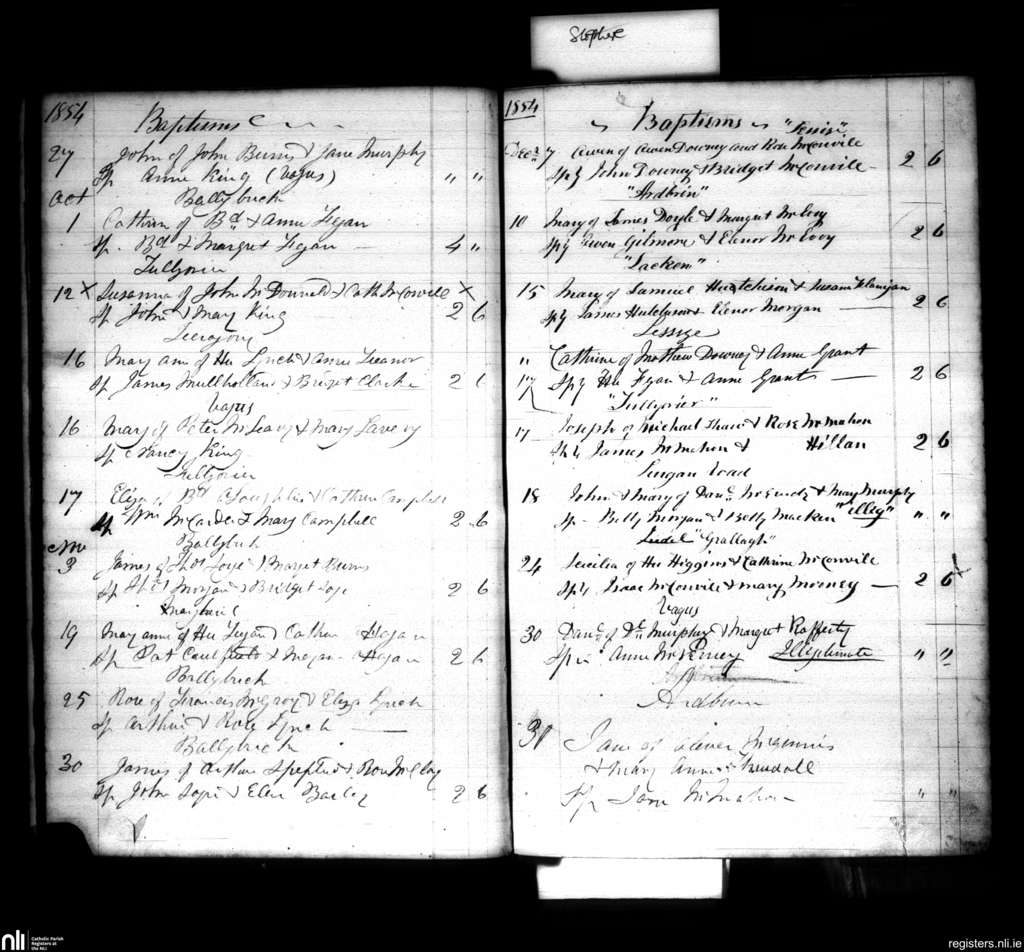 Stophere
1854
Baptisms
27 John of John Burns & Jane Murphy
Sp Annie King (Vagus) " "
Oct Ballybrick
1 Cathrin of Bd & Anne Fegan
Sp. Bd & Margret Fegan 4 "
Tullyorier
12 X Susanna of John McDonnell & Cath McConvile X
Sp John & Mary King 2 6
16 Mary ann of Hu Lynch & Anne Treanor
Sp James Mullholland & Briget Clarke 2 6
Vagus
16 Mary of Peter McLeavy & Mary Lavery
Sp Nancy King
Tullyorier
17 Eliza of & Cathrin Campbell
Sp Wm McCardel & Mary Campbell 2 6
Ballybrick
Nov
3 James of Thos Loye & Marget Burns
Sp Thos Morgan & Bridget Loye 2 6
19 Mary anne of Hu Fegan & Cathrin Hogan
Sp Pat Caulfield & 2 6
Ballybrick
25 Rose of Francis McGrory & Eliza Lynch
Sp Arthur & Rose Lynch —
Ballybrick
30 James of Arthur & Rose McElroy
Sp John & Elen Barley 2 6
1854
Baptisms
Decr 7 Owen of Owen Downey and Rose McConvile
Spg John Downey & Bridget McConvile 2 6
"Ardbrin"
10 Mary of James Doyle & Margret McEvoy
Spg Owen Gilmore & Elenor McEvoy 2 6
"Lacken"
15 Mary of Samuel Hutchison & Susan Flanigan
Spg James Hutchison & Elenor Morgan 2 6
" Cathrine of Mathew Downey & Anne Grant
17 Spg Hu Fegan & Anne Grant — 2 6
"Tullyorier"
17 Joseph of Michael Shaw & Rose McMahon
Spg James McMahon & Hillan 2 6
Lurgan Road
18 John & Mary of Danl & Mary Murphy
Sp - Betty Morgan & Betty Macken "illeg" " "
"Grallagh"
24 Secilia of Hu Higgins & Cathrine McConvile
Spg Isaac McConvile & Mary Mooney — 2 6
Vagus
30 Danl of Dl Murphy & Margret Rafferty
Anne Illigitimate " "
Ardbrin
30 Jane of Oliver Megennis
& Mary Anne Trudall
Sp Jane McMahon " "
nli
Catholic Parish
Registers at
the NLI
registers.nli.ie